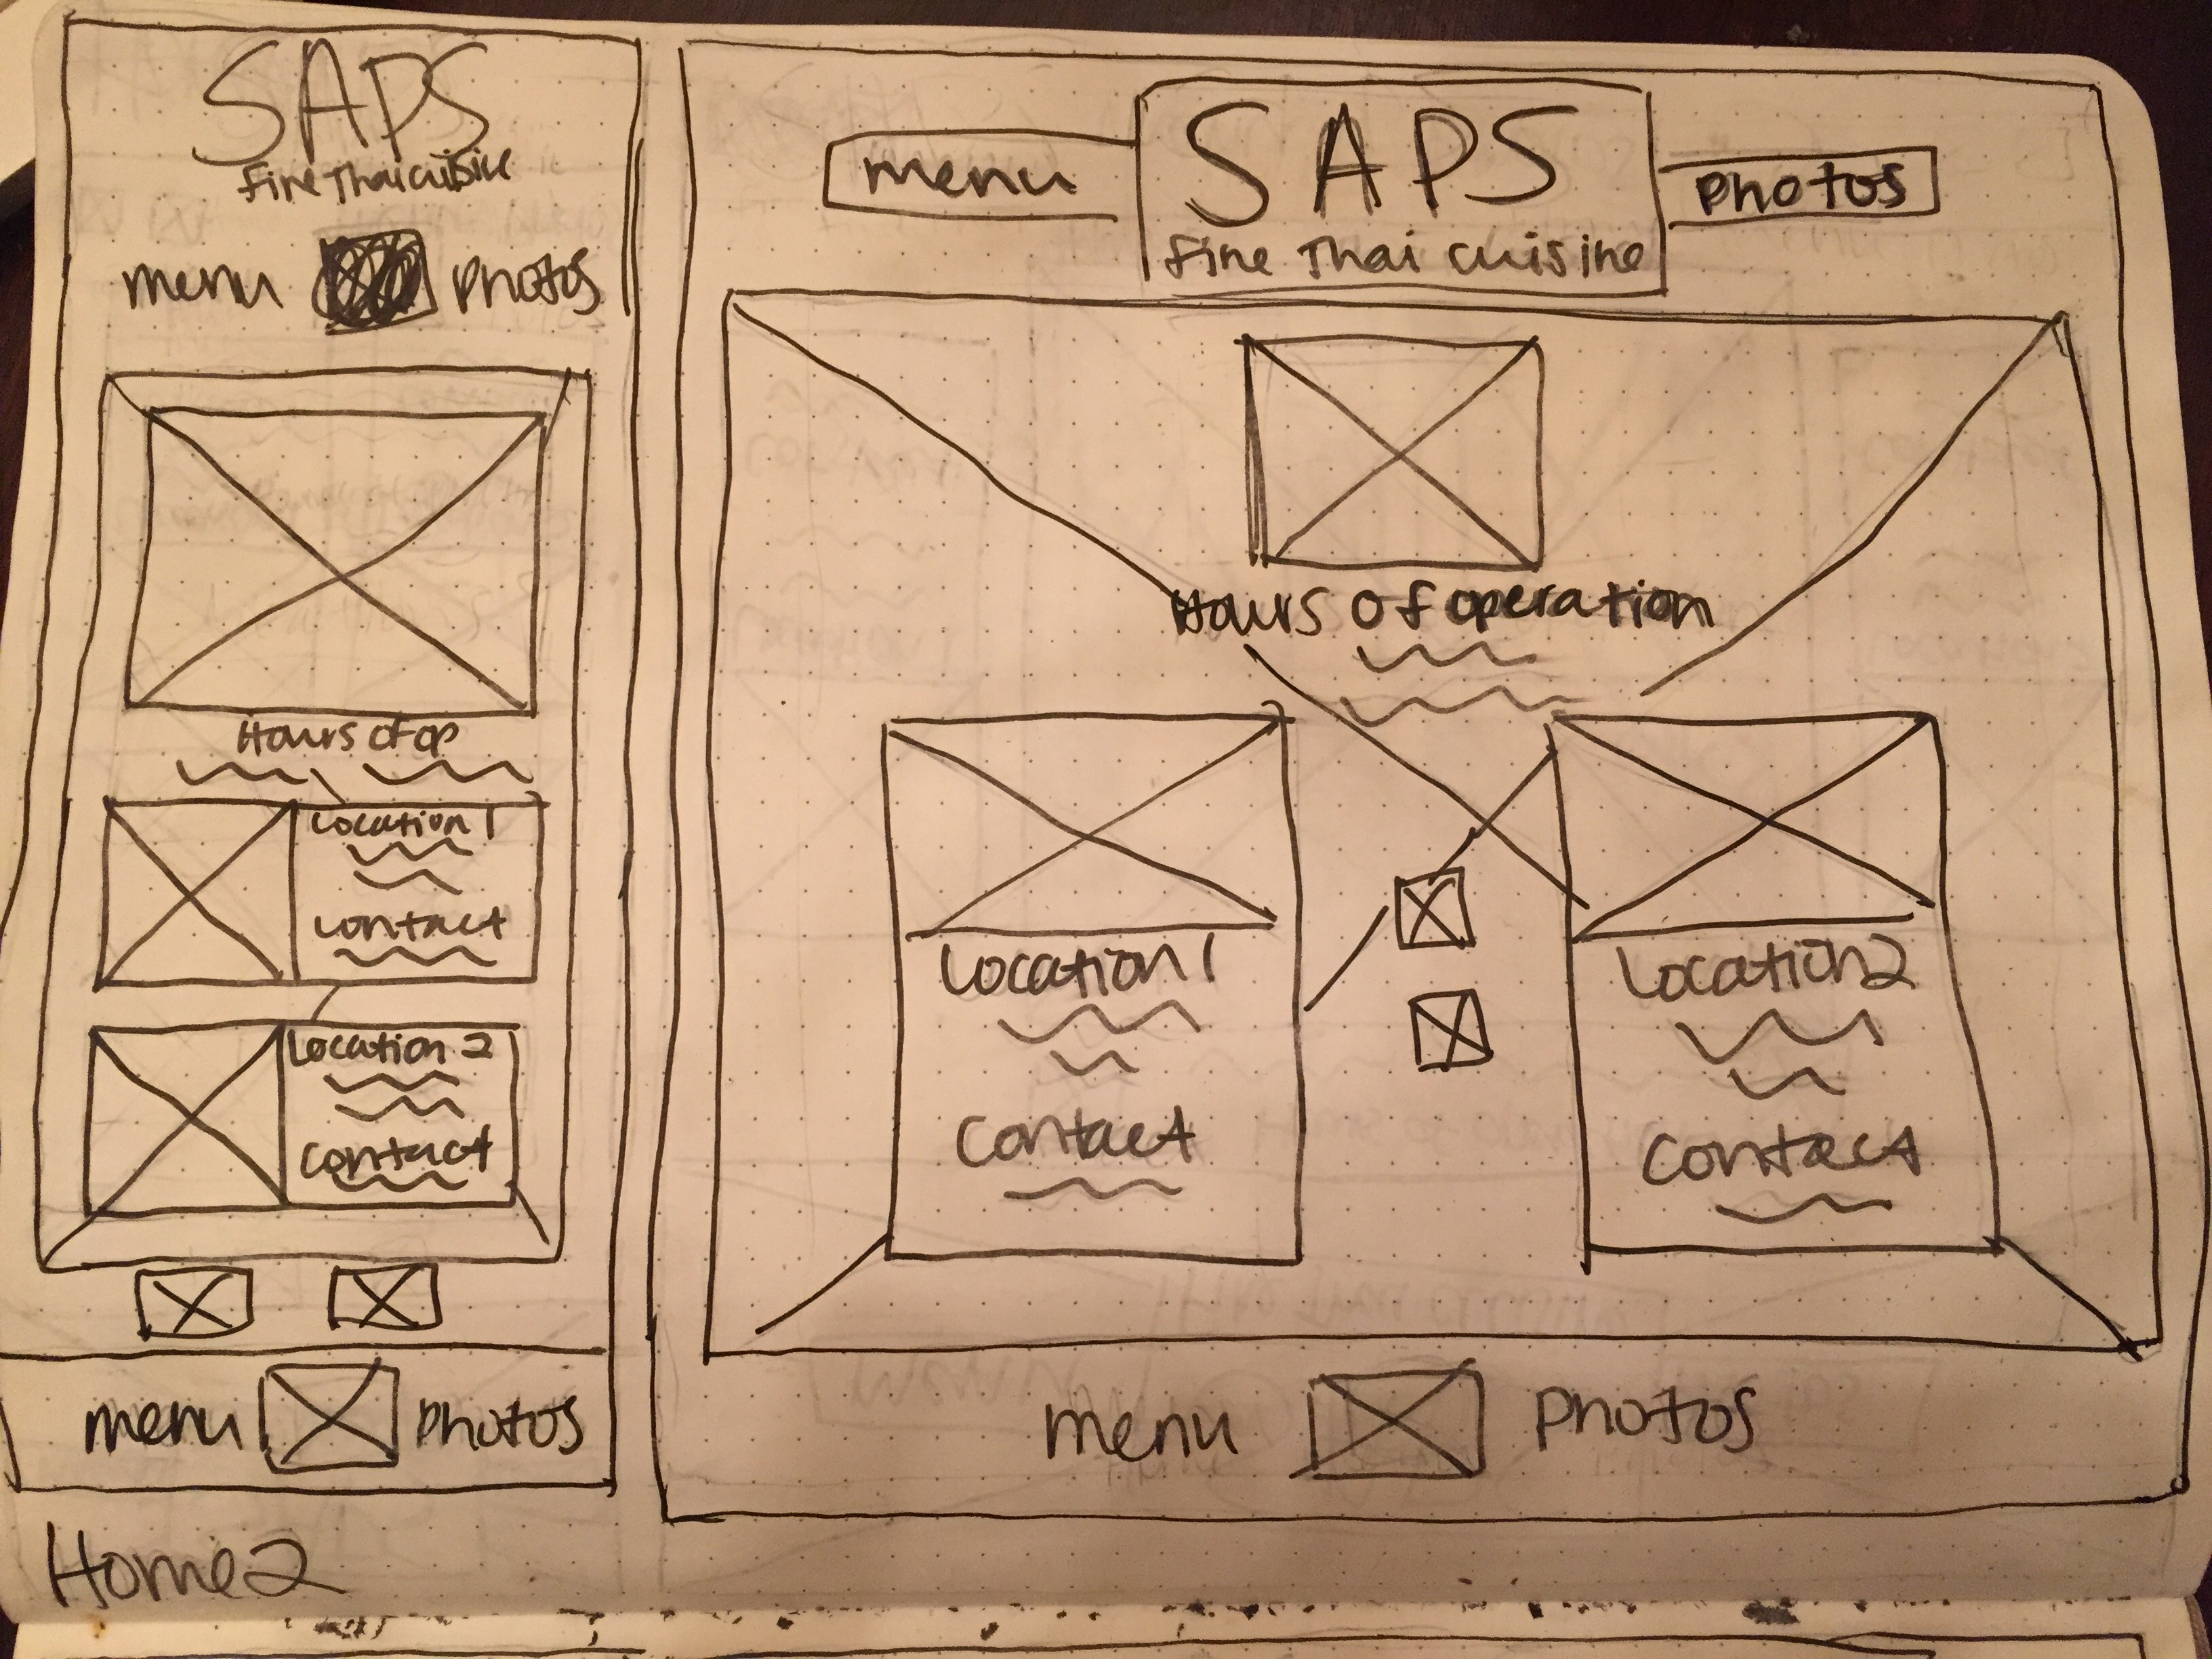 SAPS
fine Thai cuisine
menu photos
Hours of op
Location 1
contact
Location 2
contact
menu photos
menu SAPS photos
fine Thai cuisine
Hours of operation
Location 1
contact
Location 2
contact
menu photos
Home 2